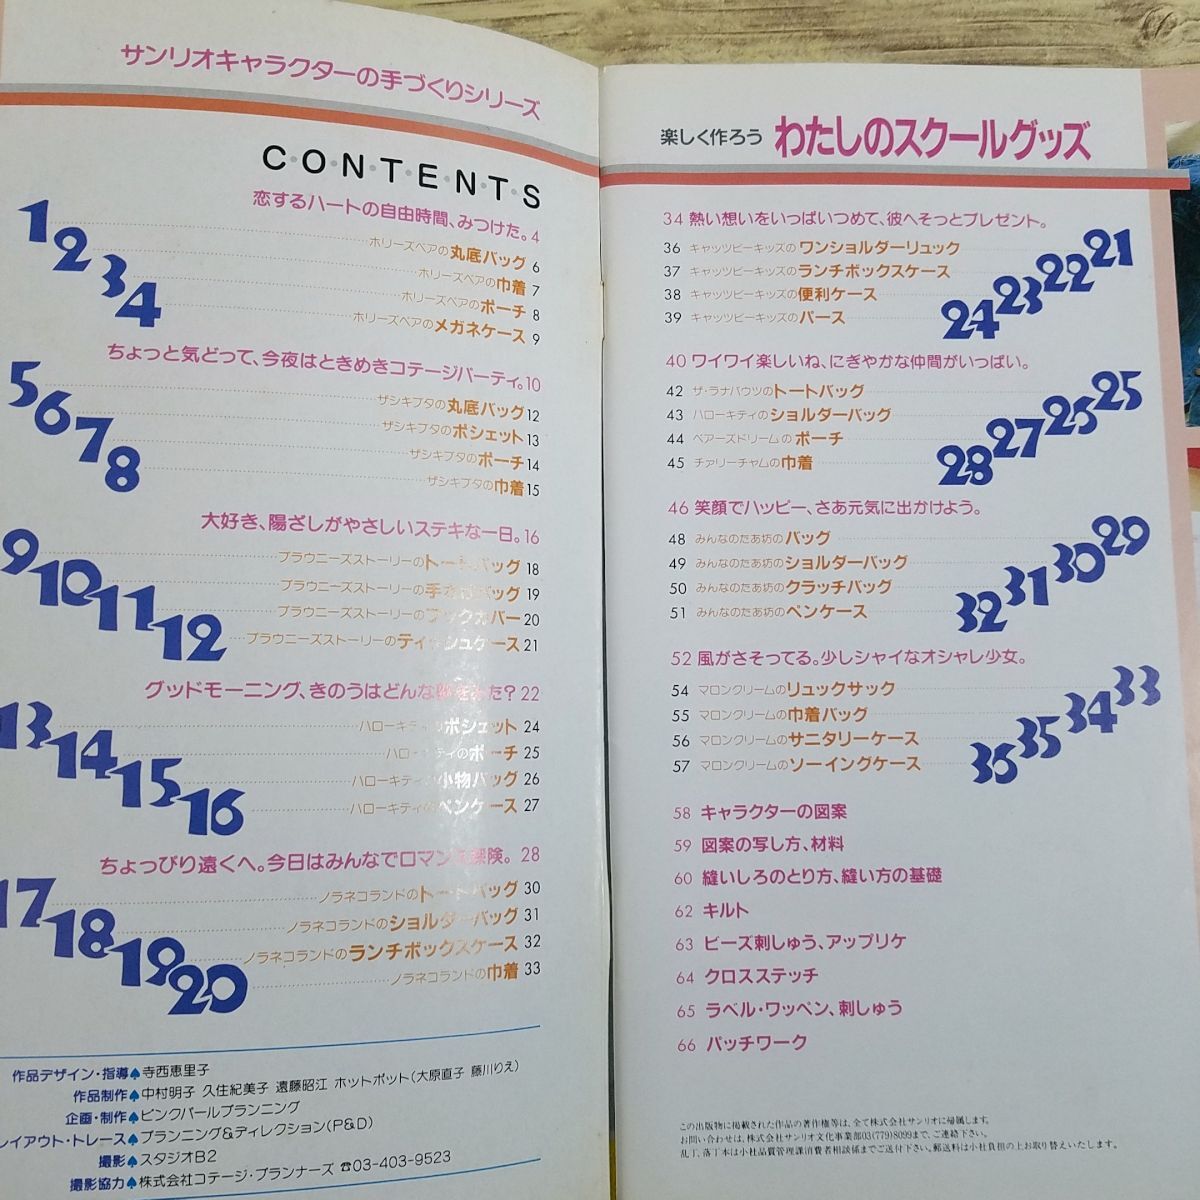 サンリオキャラクターの手づくりシリーズ
CONTENTS
恋するハートの自由時間、みつけた。4
1 ホリーズベアの丸底バッグ 6
2 ホリーズベアの巾着 7
3 ホリーズベアのポーチ 8
4 ホリーズベアのメガネケース 9
ちょっと気どって、今夜はときめきコテージパーティ。10
5 ザシキブタの丸底バッグ 12
6 ザシキブタのポシェット 13
7 ザシキブタのポーチ 14
8 ザシキブタの巾着 15
大好き、陽ざしがやさしいステキな一日。16
9 ブラウニーズストーリーのトートバッグ 18
10 ブラウニーズストーリーの手 バッグ 19
11 ブラウニーズストーリーのブックカバー 20
12 ブラウニーズストーリーのティッシュケース 21
グッドモーニング、きのうはどんな た? 22
13 ハローキティのポシェット 24
14 ハローキティのポーチ 25
15 ハローキティの小物バッグ 26
16 ハローキティのペンケース 27
ちょっぴり遠くへ。今日はみんなでロマンス探険。28
17 ノラネコランドのトートバッグ 30
18 ノラネコランドのショルダーバッグ 31
19 ノラネコランドのランチボックスケース 32
20 ノラネコランドの巾着 33
作品デザイン・指導♠寺西恵里子
作品制作♠中村明子 久住紀美子 遠藤昭江 ホットポット(大原直子 藤川りえ)
企画・制作♠ピンクパールプランニング
レイアウト・トレース♠プランニング&ディレクション(P&D)
撮影♠スタジオB2
撮影協力♠株式会社コテージ・プランナーズ ☎03-403-9523
楽しく作ろう わたしのスクールグッズ
34 熱い想いをいっぱいつめて、彼へそっとプレゼント。
36 キャッツビーキッズのワンショルダーリュック 21
37 キャッツビーキッズのランチボックスケース 22
38 キャッツビーキッズの便利ケース 23
39 キャッツビーキッズのパース 24
40 ワイワイ楽しいね、にぎやかな仲間がいっぱい。
42 ザ・ラナバウツのトートバッグ 25
43 ハローキティのショルダーバッグ 26
44 ベアーズドリームのポーチ 27
45 チァリーチャムの巾着 28
46 笑顔でハッピー、さあ元気に出かけよう。
48 みんなのたあ坊のバッグ 29
49 みんなのたあ坊のショルダーバッグ 30
50 みんなのたあ坊のクラッチバッグ 31
51 みんなのたあ坊のペンケース 32
52 風がさそってる。少しシャイなオシャレ少女。
54 マロンクリームのリュックサック 33
55 マロンクリームの巾着バッグ 34
56 マロンクリームのサニタリーケース 35
57 マロンクリームのソーイングケース 36
58 キャラクターの図案
59 図案の写し方、材料
60 縫いしろのとり方、縫い方の基礎
62 キルト
63 ビーズ刺しゅう、アップリケ
64 クロスステッチ
65 ラベル・ワッペン、刺しゅう
66 パッチワーク
この出版物に掲載された作品の著作権等は、全て株式会社サンリオに帰属します。
お問い合わせは、株式会社サンリオ文化事業部03(779)8099まで、ご連絡下さい。
乱丁、落丁本は小社品質管理課消費者相談係までご送付下さい。郵送料は小社負担の上お取り替えいたします。